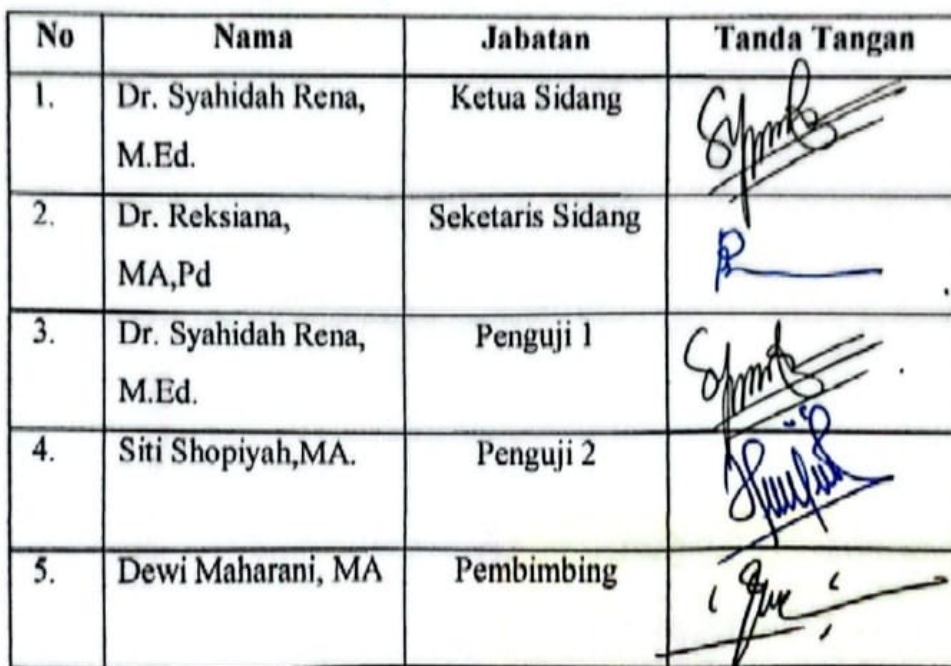 No Nama Jabatan Tanda Tangan
1. Dr. Syahidah Rena, Ketua Sidang
M.Ed.
2. Dr. Reksiana, Seketaris Sidang
MA,Pd
3. Dr. Syahidah Rena, Penguji 1
M.Ed.
4. Siti Shopiyah,MA. Penguji 2
5. Dewi Maharani, MA Pembimbing